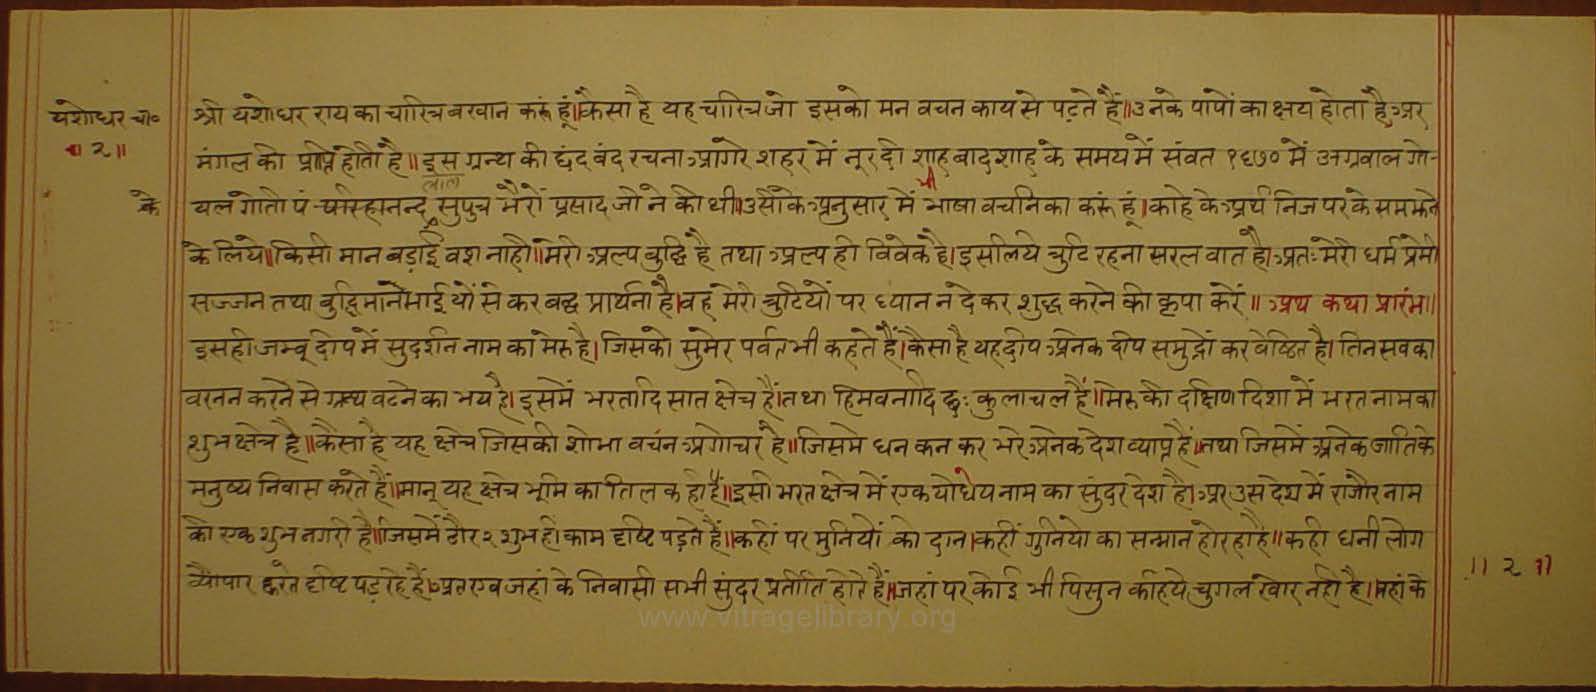 यशोधर च०
॥ २ ॥
के
श्री यशोधर राय का चारित्र बखान करूं हूं॥ कैसा है यह चारित्र जो इसको मन वचन काय से पढ़ते हैं॥ उनके पापों का क्षय होता है अर
मंगल की प्राप्ति होती है॥ इस ग्रन्थ की छंद बंद रचना आगरे शहर में नूरदी शाह बादशाह के समय में संवत १६७० में अग्रवाल गो-
लाल
श्री
यल गोती पं सुपुत्र भैरों प्रसाद जी ने की थी॥ उसी के अनुसार में भाषा वचनिका करूं हूं। काहे के अर्थ निज पर के समझने
के लिये॥ किसी मान बड़ाई वश नाही॥ मेरी अल्प बुद्धि है तथा अल्प ही विवेक है। इसलिये त्रुटि रहना सरल वात है। अतः मेरी धर्म प्रेमी
सज्जन तथा बुद्धिमान भाईयों से कर बद्ध प्रार्थना है। वह मेरी त्रुटियों पर ध्यान न दे कर शुद्ध करने की कृपा करें॥ अथ कथा प्रारंभ॥
इसही जम्बू दीप में सुदर्शन नाम का मेरु है। जिसको सुमेर पर्वत भी कहते हैं। कैसा है यह दीप अनेक दीप समुद्रों कर वेष्ठित है। तिन सव का
वरनन करने से ग्रन्थ वढने का भय है। इसमें भरतादि सात क्षेत्र हैं। तथा हिमवनादि छः कुलाचल हैं॥ मेरु की दक्षिण दिशा में भरत नाम का
शुभ क्षेत्र है॥ कैसा है यह क्षेत्र जिसकी शोभा वचन अगोचर है॥ जिसमे धन कन कर भरे अनेक देश व्याप्त हैं॥ तथा जिसमें अनेक जाति के
मनुष्य निवास करते हैं॥ मानू यह क्षेत्र भूमि का तिलक ही हैं॥ इसी भरत क्षेत्र में एक योधेय नाम का सुंदर देश है। अर उस देश में राजौर नाम
की एक शुभ नगरी है॥ जिसमें ठौर २ शुभ ही काम दृष्टि पड़ते हैं॥ कहीं पर मुनियों को दान। कहीं गुनियो का सन्मान हो रहा है॥ कही धनी लोग
व्यापार करते दृष्टि पड़ रहे हैं। अतएव जहां के निवासी सभी सुंदर प्रतीति होते हैं॥ जहां पर कोई भी पिसुन कहिये चुगल खोर नही है॥ जहां के
॥ २ ॥
www.vitragelibrary.org